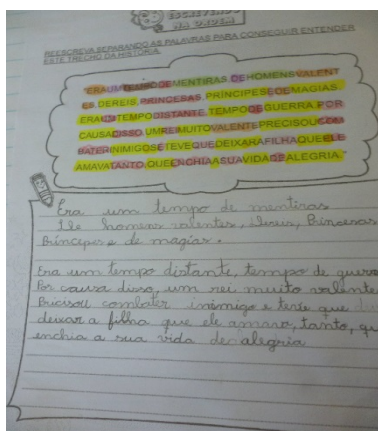 ESCREVENDO
NA ORDEM
REESCREVA SEPARANDO AS PALAVRAS PARA CONSEGUIR ENTENDER
ESTE TRECHO DA HISTÓRIA.
"ERAUMTEMPODEMENTIRASDEHOMENSVALENT
ES,DEREIS,PRINCESAS,PRÍNCIPESEDEMAGIAS.
ERAUMTEMPODISTANTE,TEMPODEGUERRA.POR
CAUSADISSO,UMREIMUITOVALENTEPRECISOUCOM
BATERINIMIGOSETEVEQUEDEIXARAFILHAQUEELE
AMAVATANTO,QUEENCHIAASUAVIDADEALEGRIA."
Era um tempo de mentiras
De homens valentes, Princesas
Príncipes e de magías.
Era um tempo distante, tempo de guerra
Por causa disso, um rei muito valente
Pricisou combater inimigo e teve que
deixar a filha que ele amava, tanto, qu
enchia a sua vida de alegria